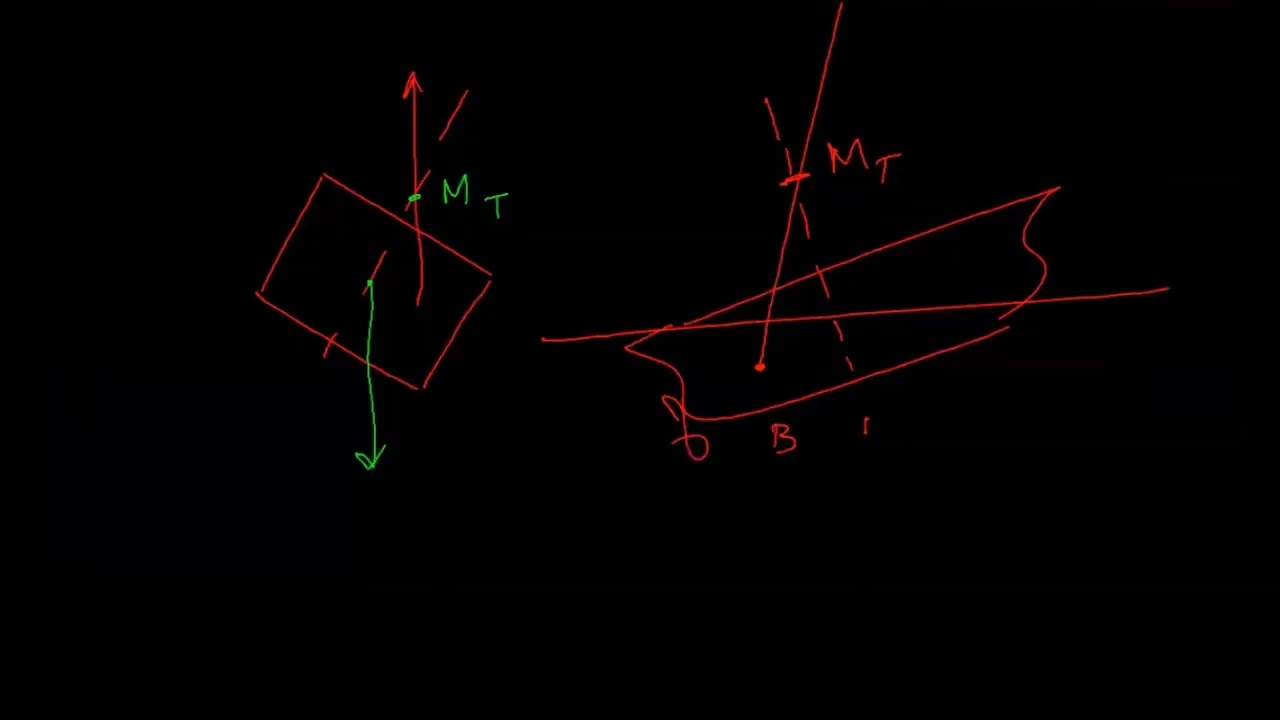 M T
M T
B